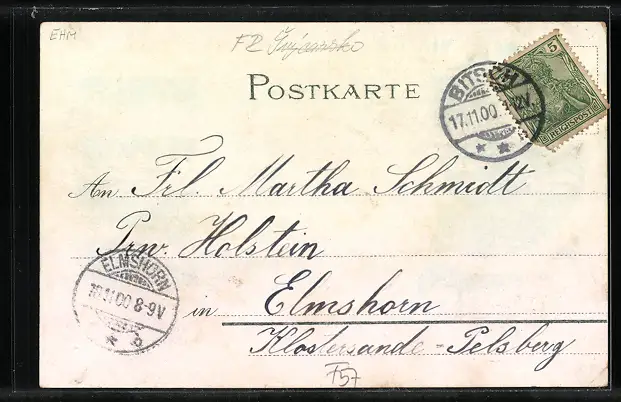 EHM
FZ
POSTKARTE
BITSCH
17.11.00.
5
REICHSPOST
An Frl. Martha Schmidt
Prov. Holstein
ELMSHORN
11.00 8-9V
in Elmshorn
Klostersande-Pelsberg